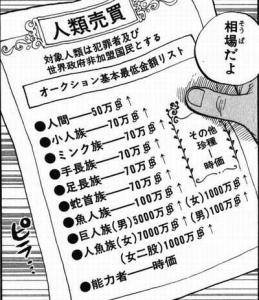 相場だよ
そうば
人類売買
対象人類は犯罪者及び
世界政府非加盟国民とする
オークション基本最低金額リスト
●人間――50万฿↑
●小人族――70万฿↑
●ミンク族――70万฿↑
●手長族――70万฿↑
●足長族――70万฿↑
●蛇首族――70万฿↑
●魚人族――100万฿↑
●巨人族(男)5000万฿↑(女)1000万฿↑
●人魚族(女)7000万฿↑(男)100万฿↑
(女二股)1000万฿↑
●能力者――時価
その他
珍種
時価
ピラ…